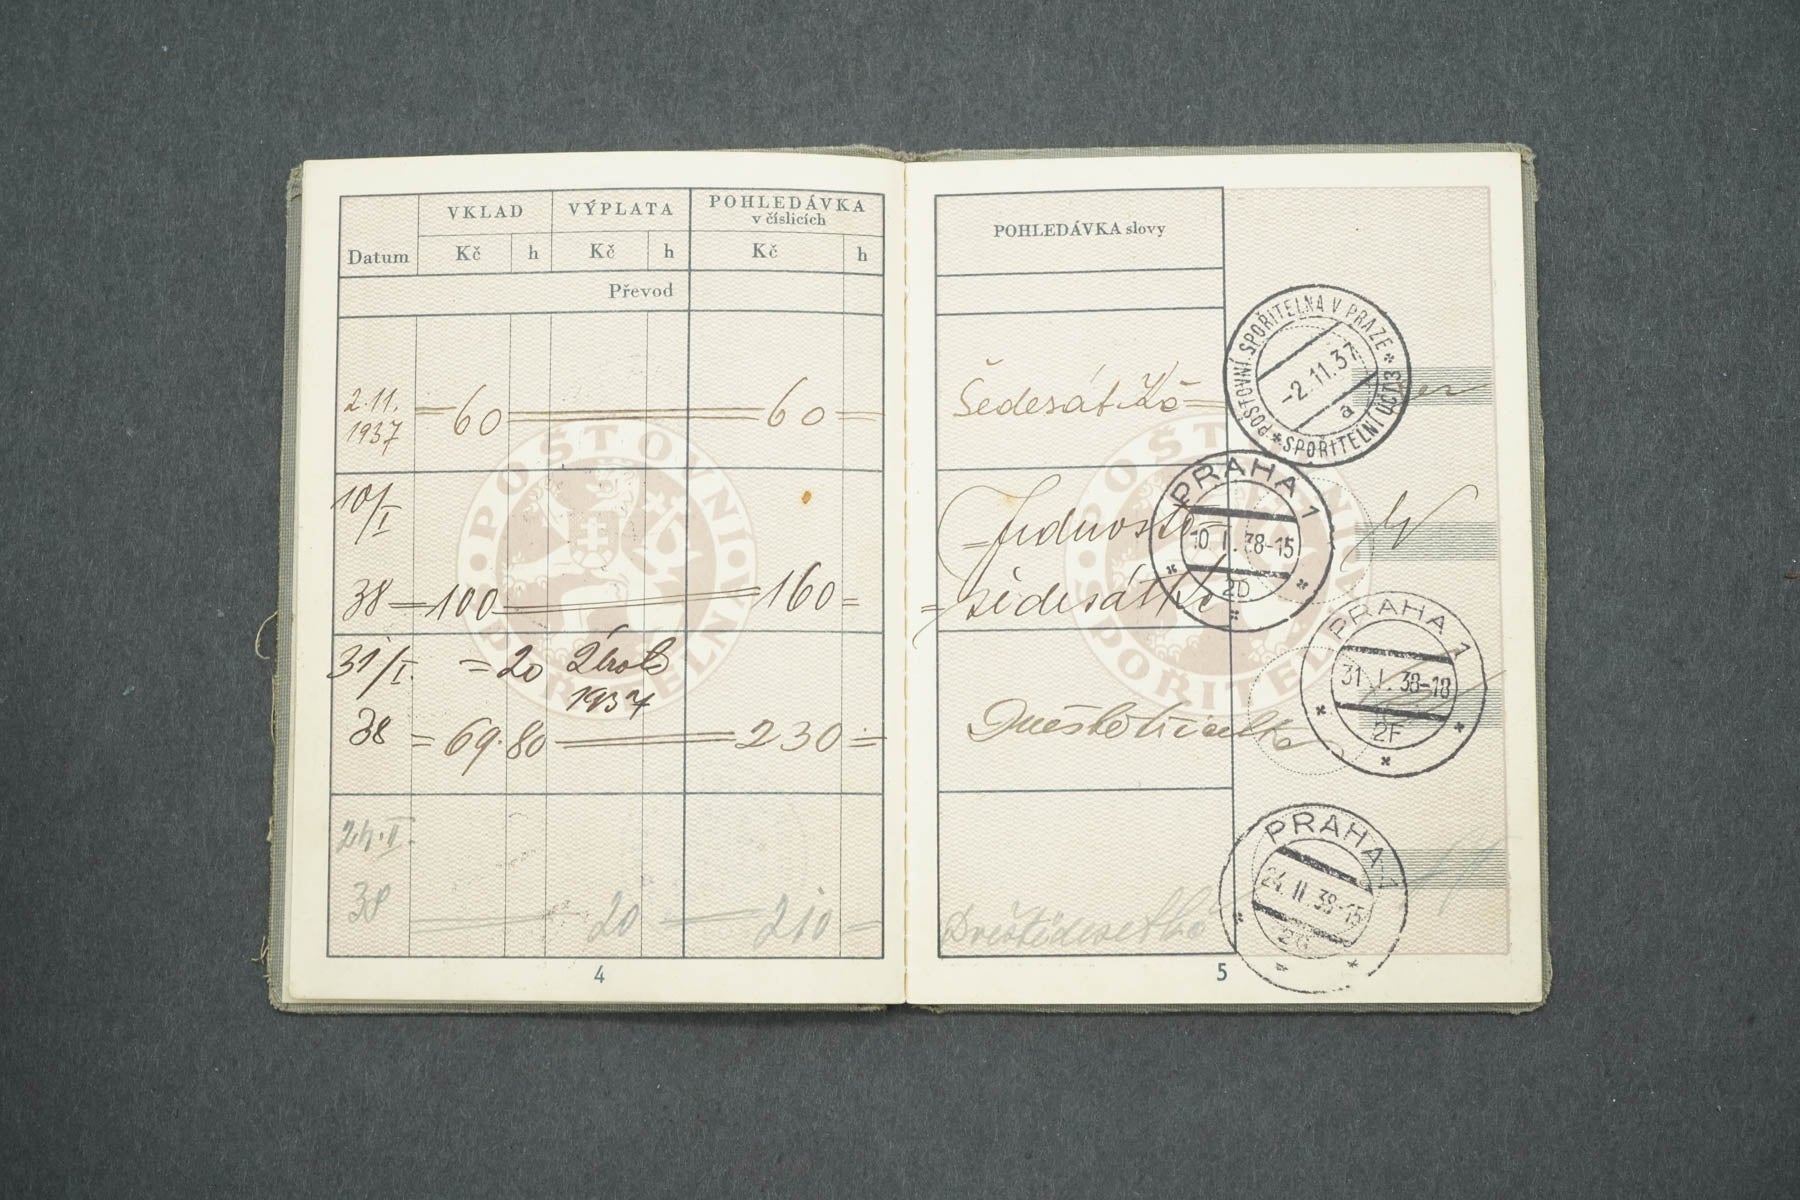 Datum
VKLAD
Kč h
VÝPLATA
Kč h
POHLEDÁVKA
v číslicích
Kč h
Převod
2.11.
1937 = 60 = 60 =
10/I
38 = 100 = 160 =
31/I. = 20 Úrok
1937
38 = 69.80 = 230 =
24.II.
38 = 20 = 210 =
4
POŠTOVNÍ SPOŘITELNA
POHLEDÁVKA slovy
Šedesát Kč =
= Jednosto =
= šedesát Kč
Dvěstětřicet Kč
Dvěstědeset Kč
5
POŠTOVNÍ SPOŘITELNA V PRAZE
-2.11.37
a
SPOŘITELNÍ ÚČT. 3
PRAHA 1
10 I. 38-15
2D
PRAHA 1
31 I. 38-18
2F
PRAHA 1
24 II. 38-15
2G